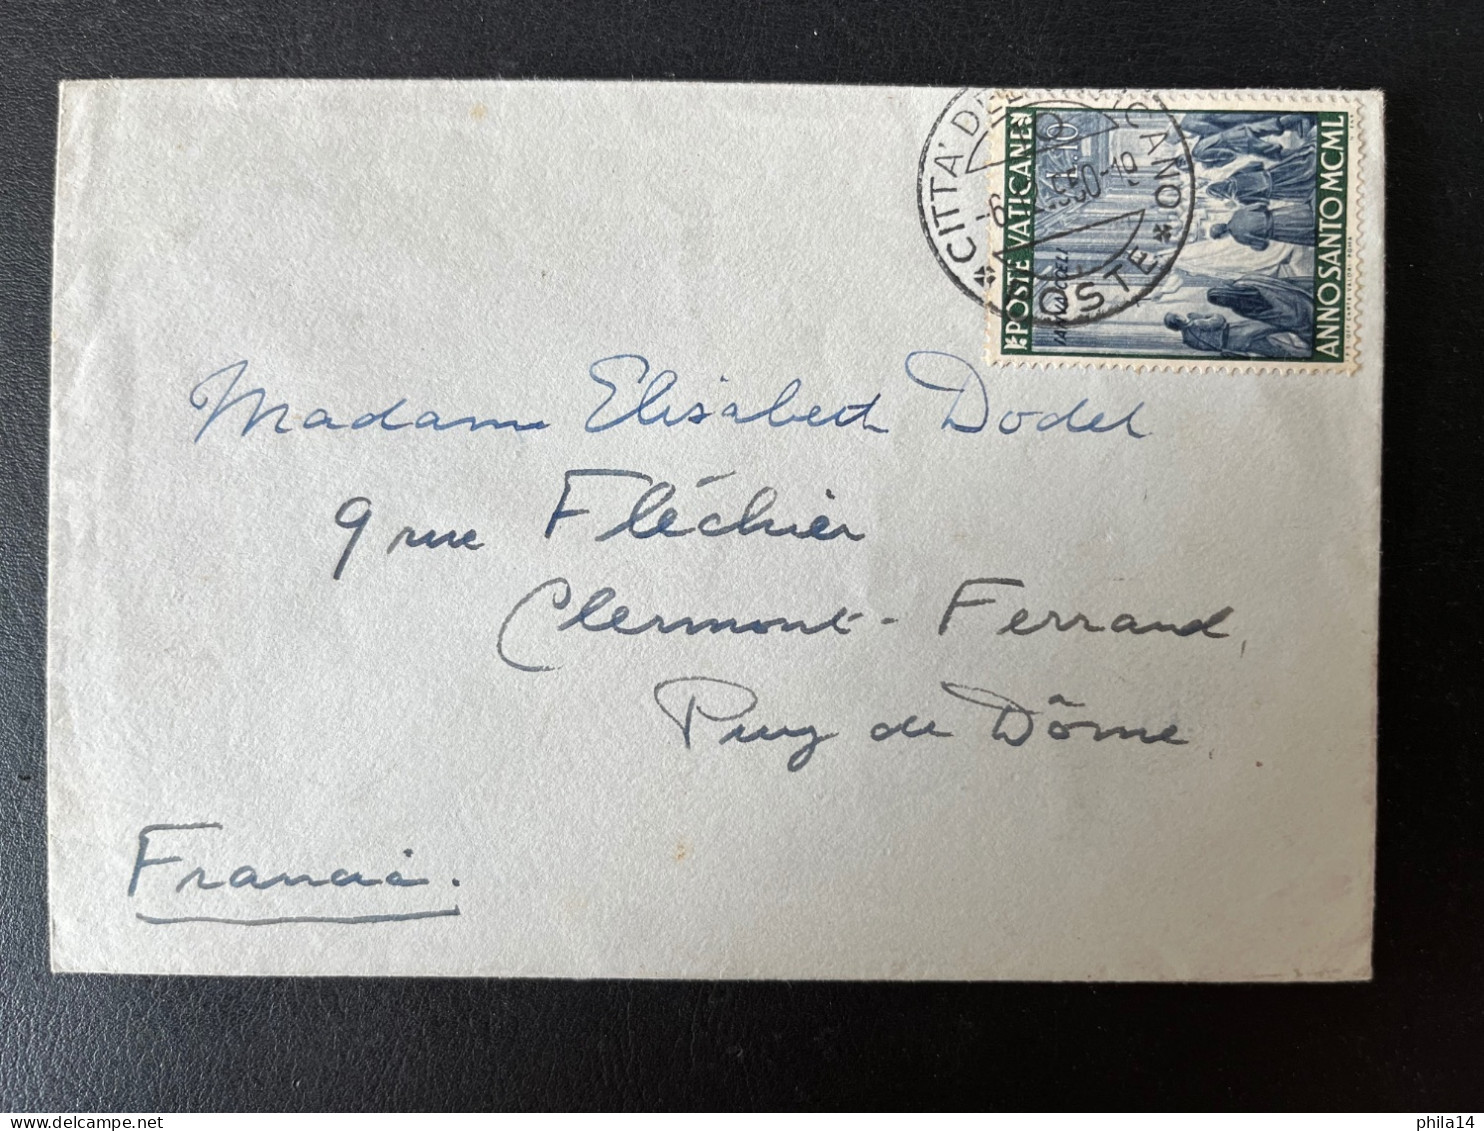 CITTA' DEL VATICANO
POSTE
POSTE VATICANE
ANNO SANTO MCML
IANVA COELI
Madame Elisabeth Dodel
9 rue Fléchier
Clermont-Ferrand,
Puy de Dôme
Francia.
phila14